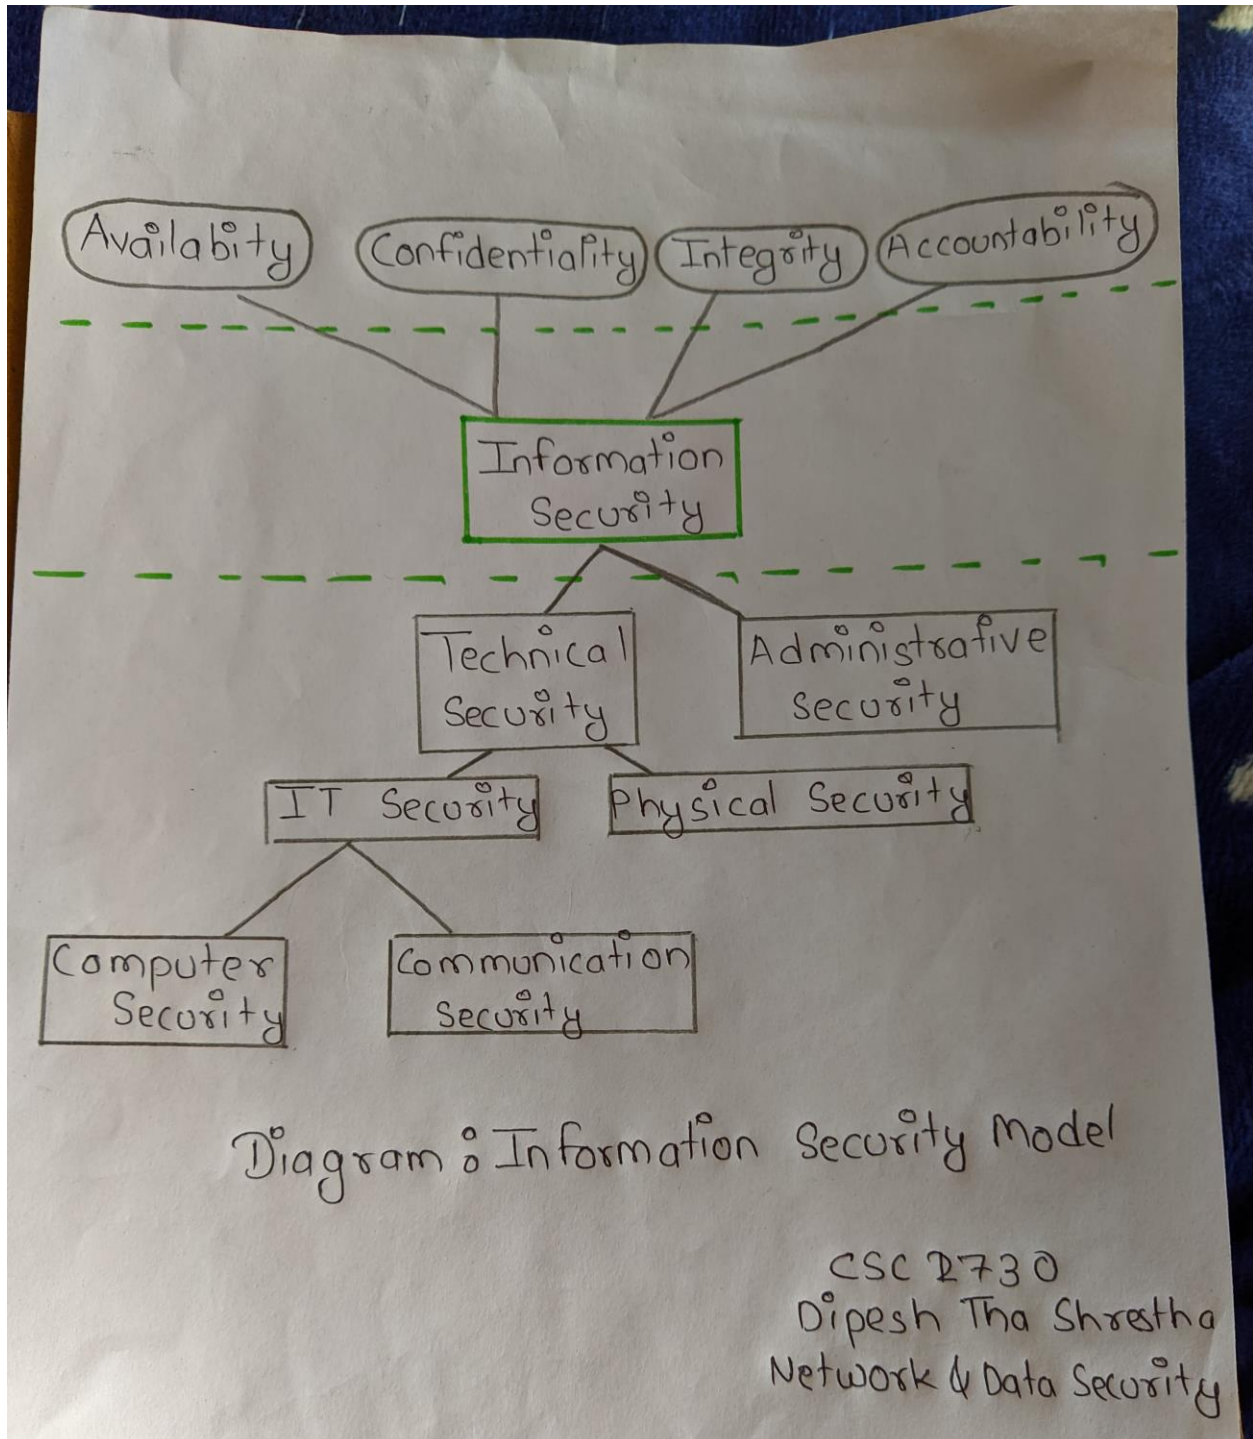 Availabity
Confidentiality
Integrity
Accountability
Information
Security
Technical
Security
Administrative
Security
IT Security
Physical Security
Computer
Security
Communication
Security
Diagram: Information Security Model
CSC 2730
Dipesh Tha Shrestha
Network & Data Security